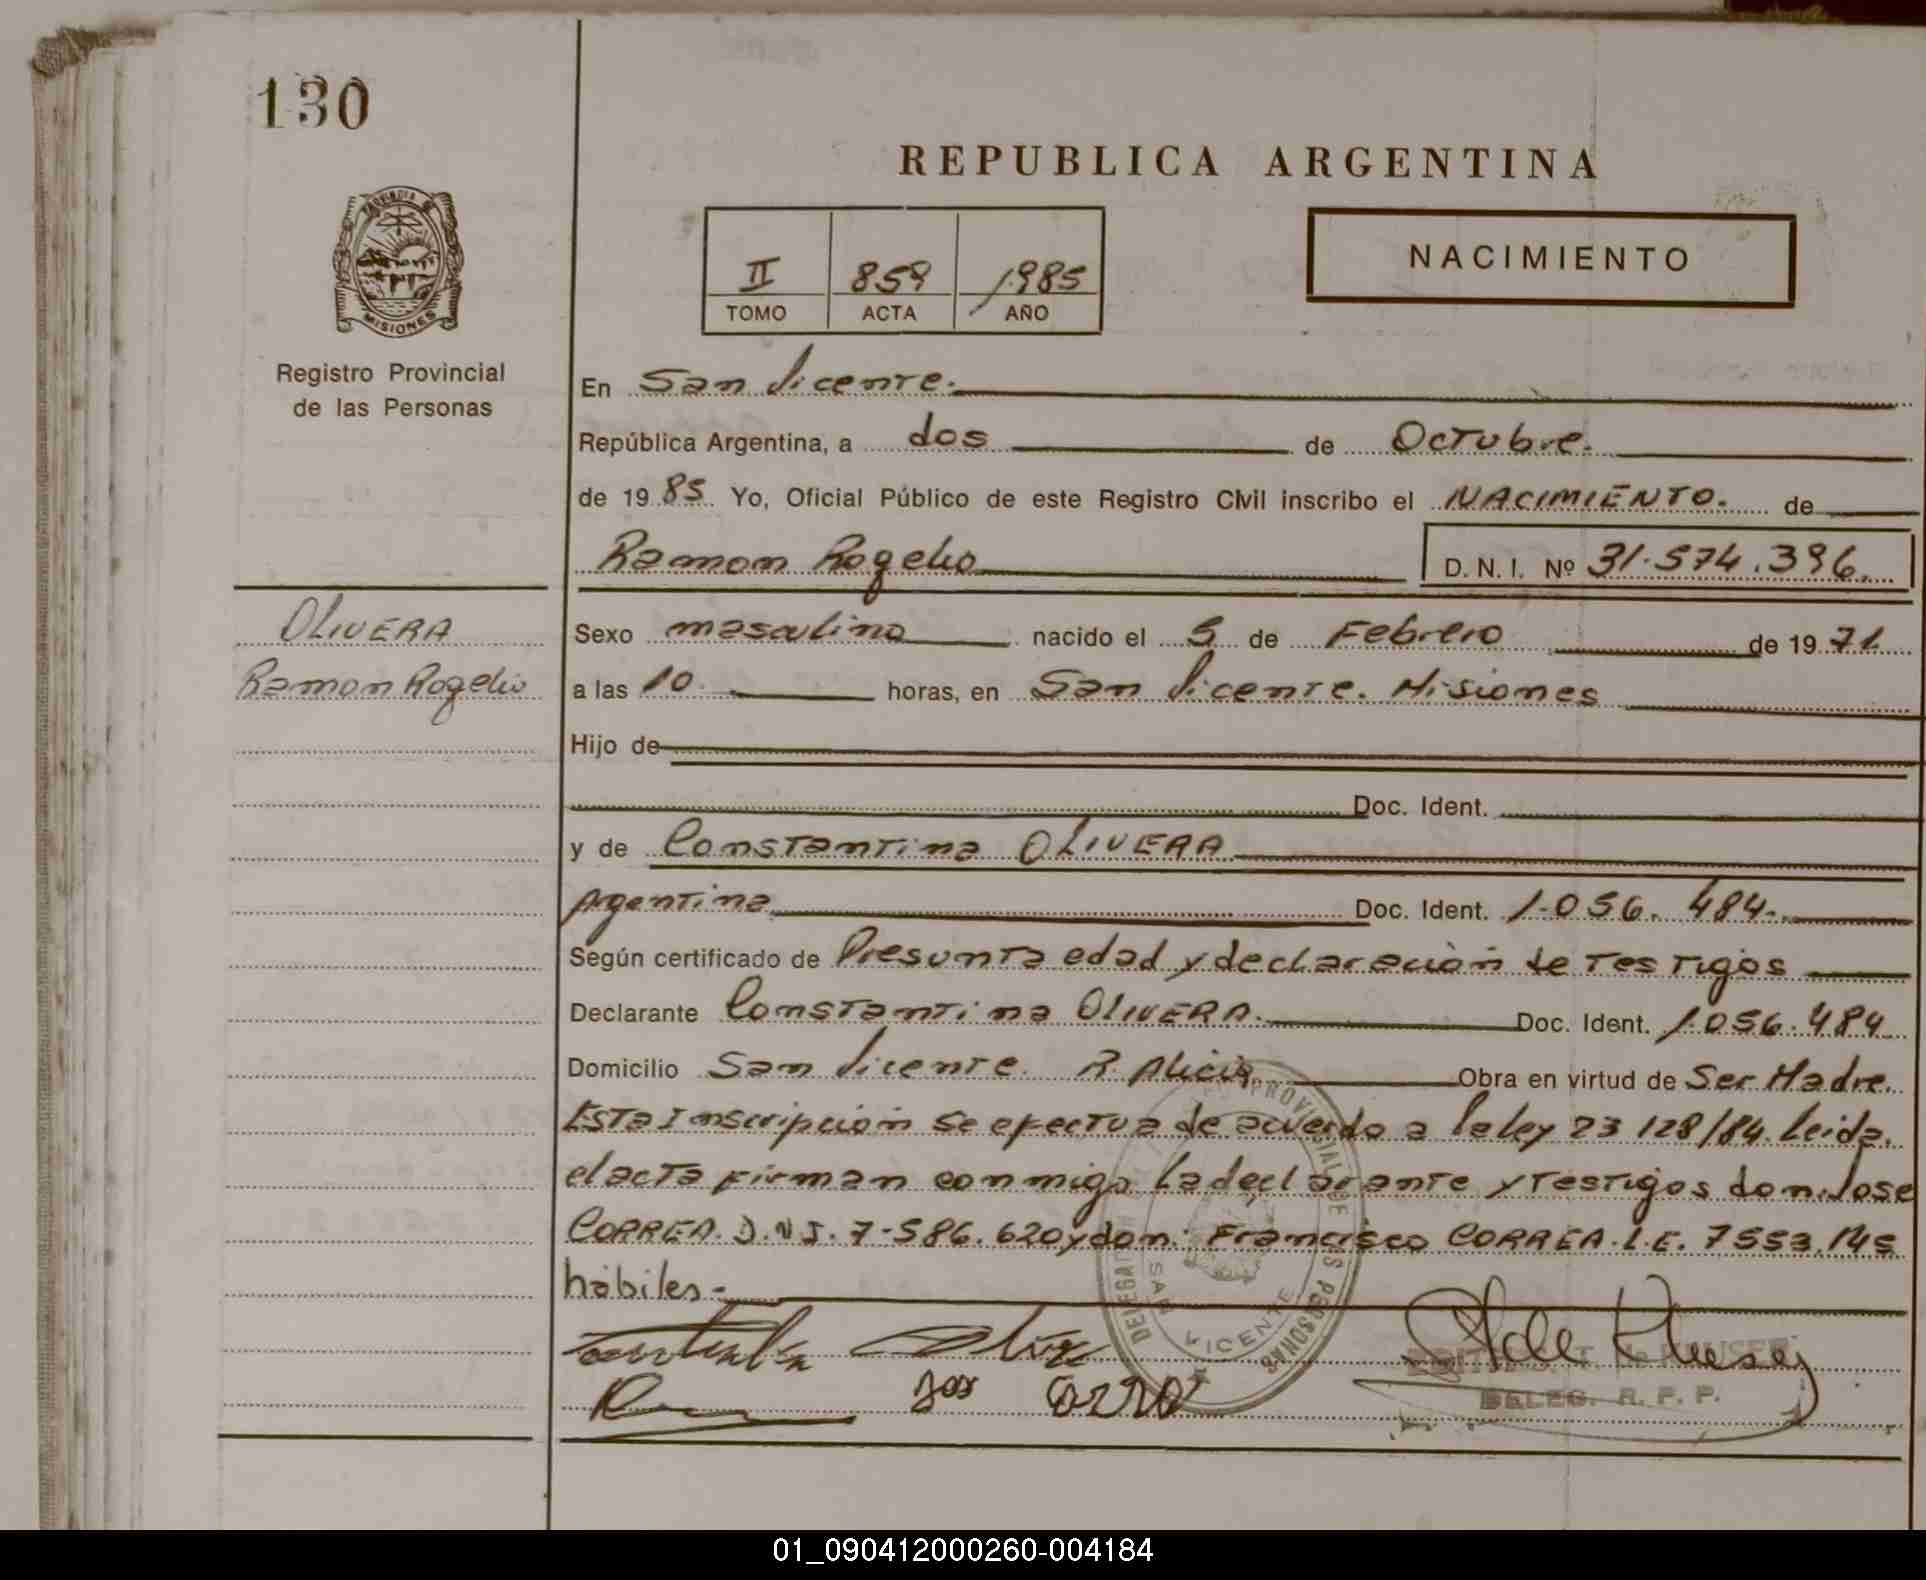 130
REPUBLICA ARGENTINA
PROVINCIA DE
MISIONES
Registro Provincial
de las Personas
II 859 1985
TOMO ACTA AÑO
NACIMIENTO
En San Vicente.
República Argentina, a dos de Octubre.
de 19 85 Yo, Oficial Público de este Registro Civil inscribo el NACIMIENTO. de
Ramon Rogelio D. N. I. Nº 31.574.396.
OLIVERA
Ramon Rogelio
Sexo masculino nacido el 5 de Febrero de 19 71
a las 10. horas, en San Vicente. Misiones
Hijo de
Doc. Ident.
y de Constantina OLIVERA
Argentina Doc. Ident. 1.056.484.
Según certificado de Presunta edad y declaración de Testigos
Declarante Constantina OLIVERA. Doc. Ident. 1.056.484
Domicilio San Vicente. P. Alicia Obra en virtud de Ser Madre.
Esta Inscripción se efectua de acuerdo a la ley 23 128/84. Leida
el acta firman conmigo la declarante y testigos don. Jose
CORREA. D.N.I. 7-586.620 y don: Francisco CORREA. L.E. 7553.145
hábiles.-
DELEGACION PROVINCIAL DE LAS PERSONAS
SAN VICENTE
DELEG. R. P. P.
01_090412000260-004184